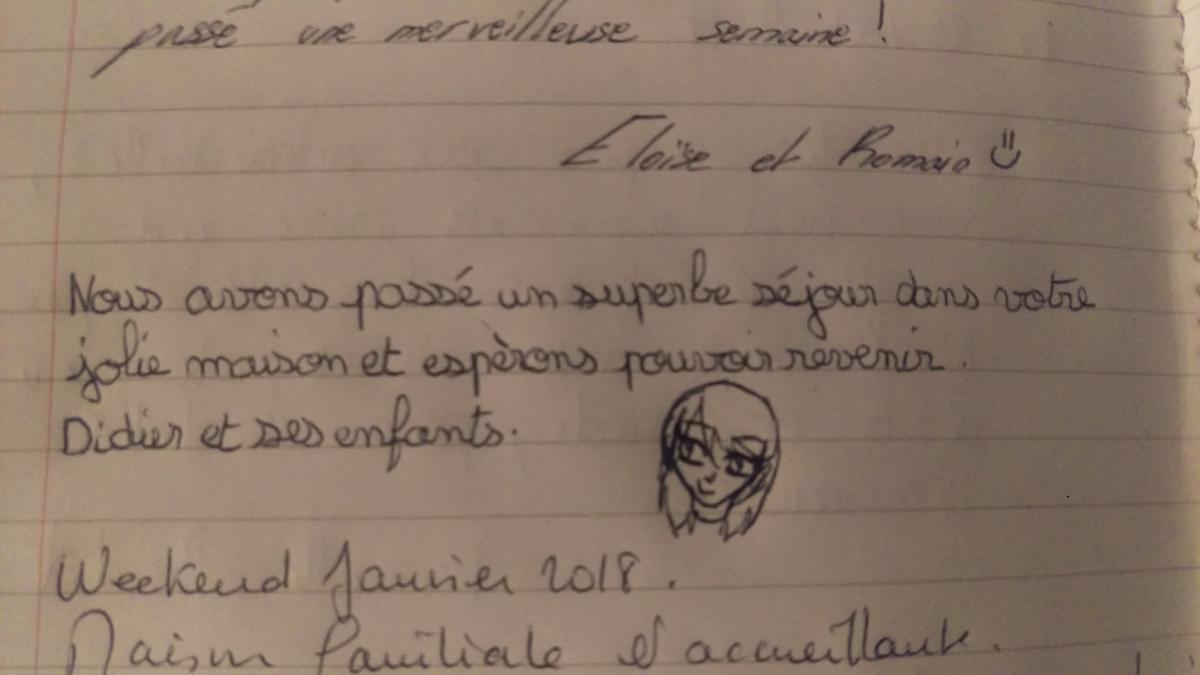 passé une merveilleuse semaine !
Eloïse et Romain
Nous avons passé un superbe séjour dans votre
jolie maison et espèrons pouvoir revenir.
Didier et ses enfants.
Weekend Janvier 2018.
Maison familiale et accueillante.